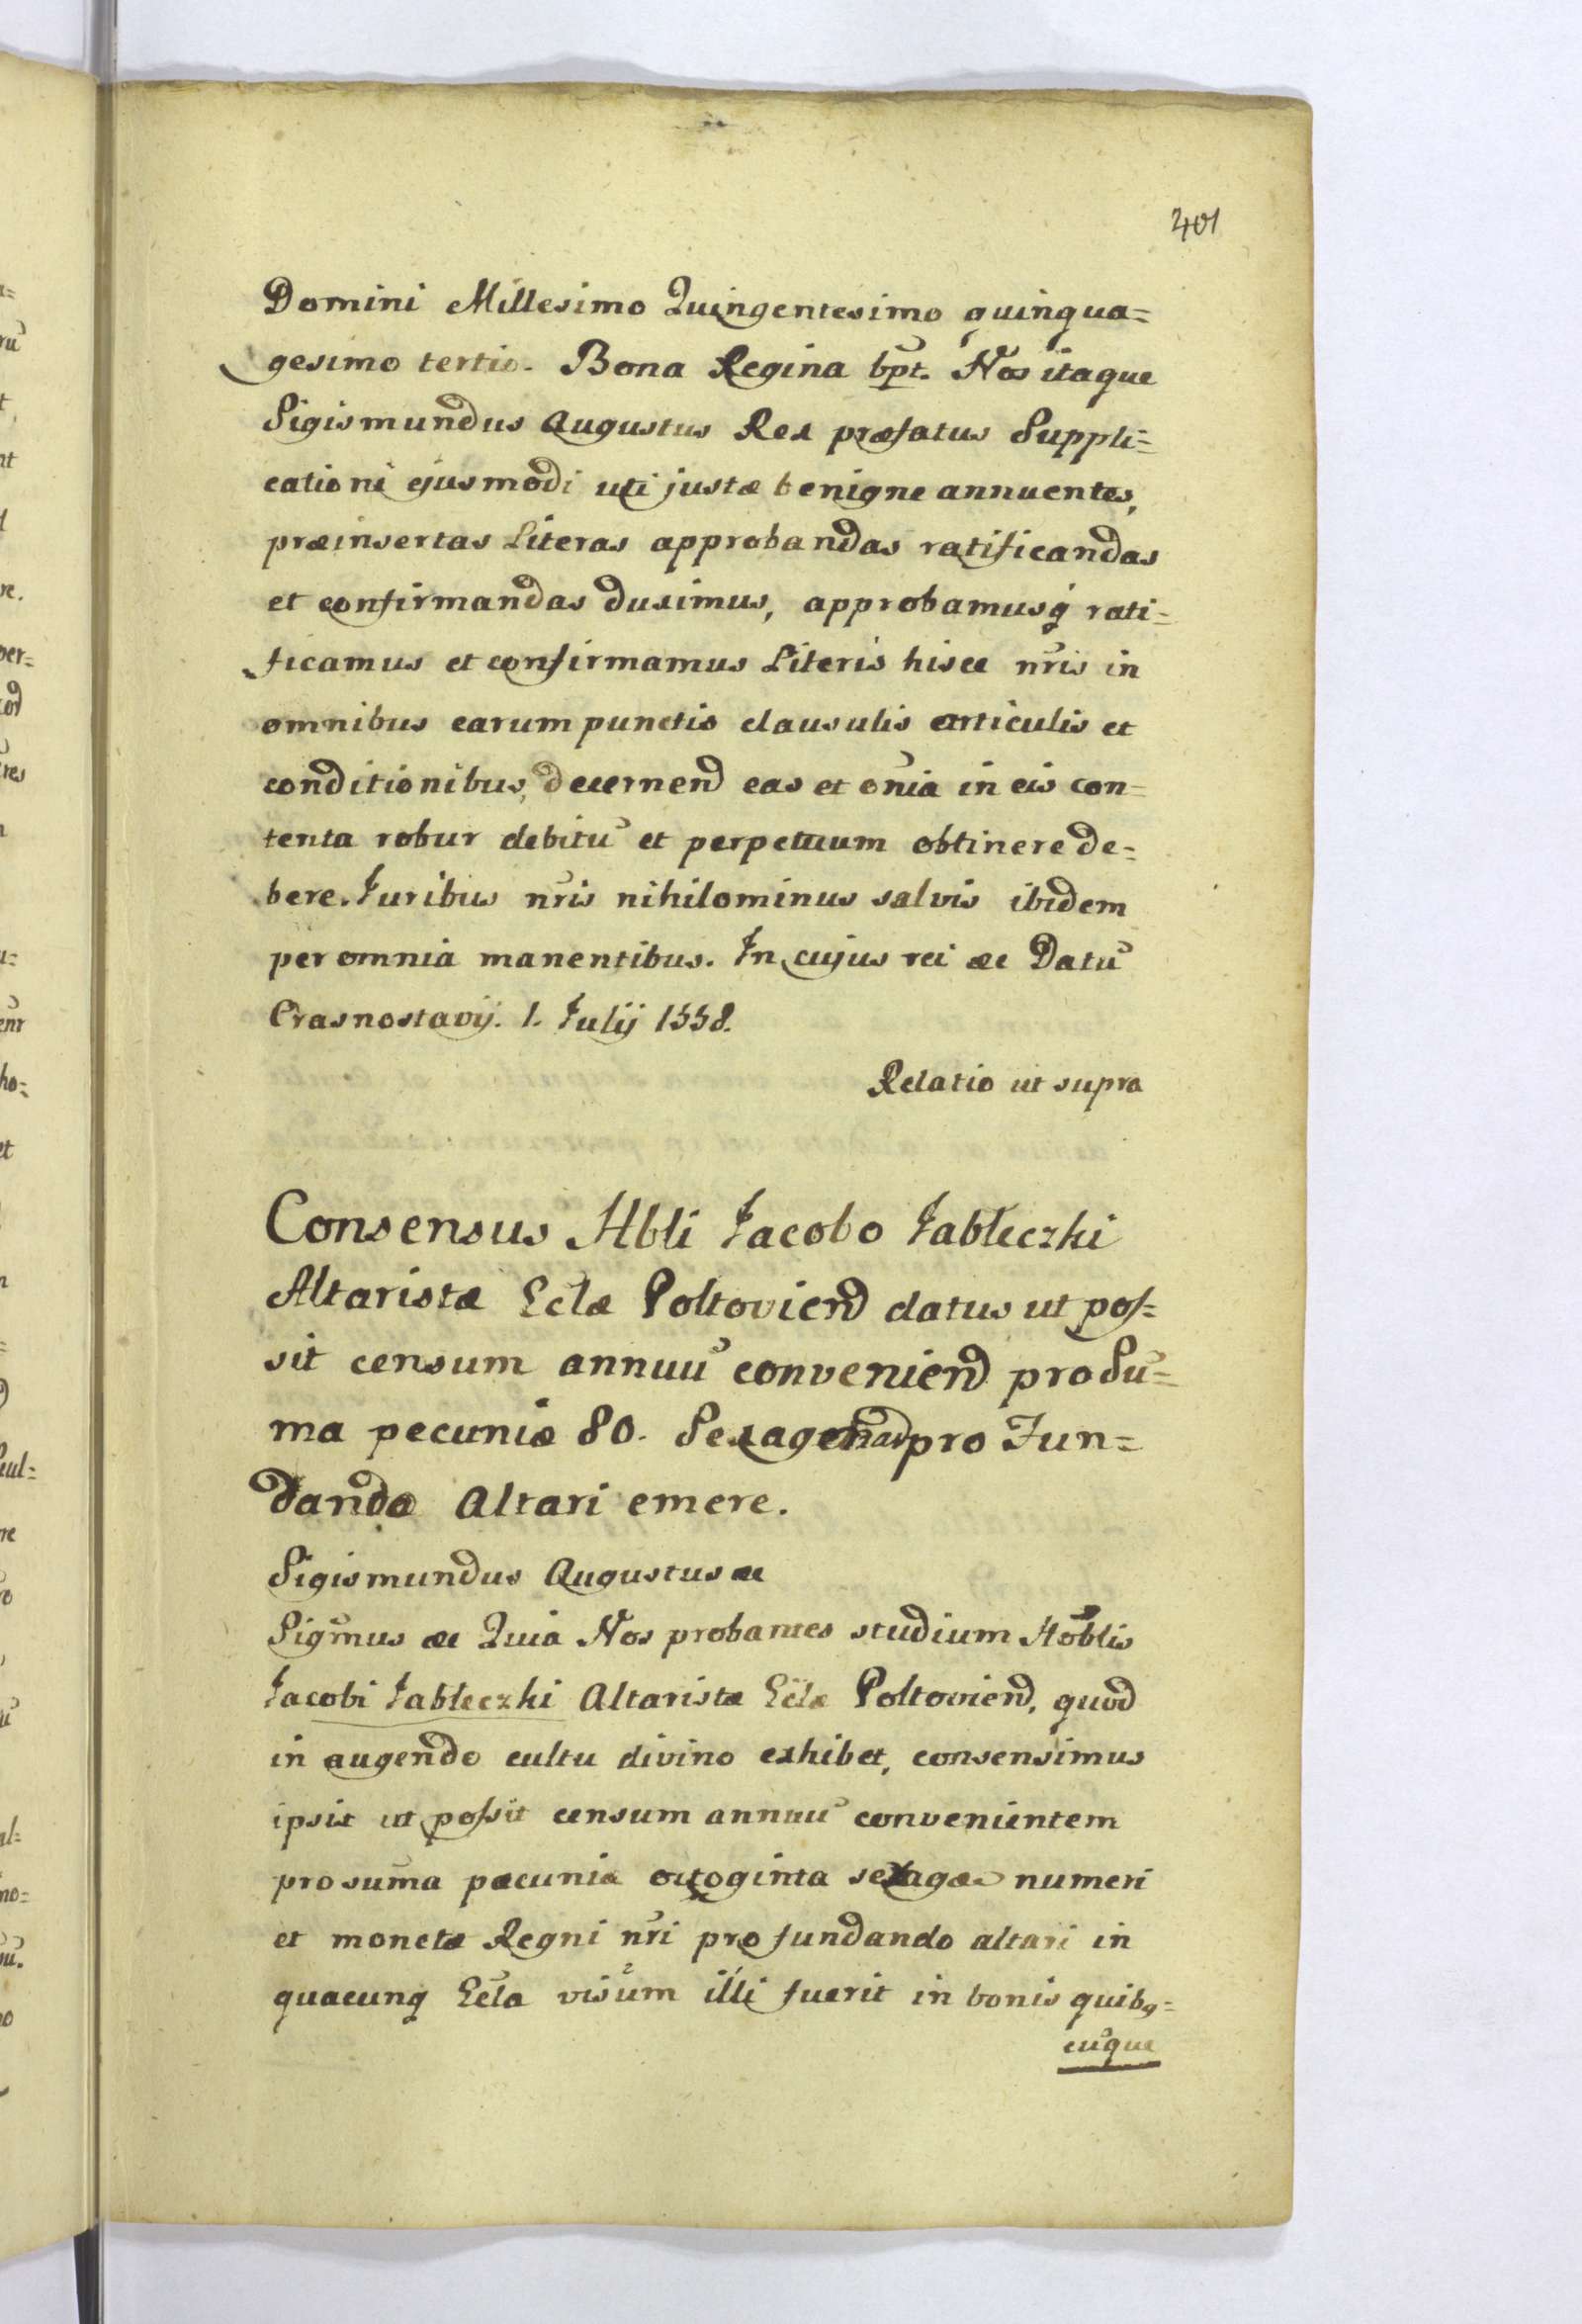 401
Domini Millesimo Quingentesimo quinqua=
gesimo tertio. Bona Regina bpt. Nos itaque
Sigismundus Augustus Rex præfatus Suppli=
cationi ejusmodi uti justæ benigne annuentes,
præinsertas Literas approbandas ratificandas
et confirmandas duximus, approbamusq́ rati=
ficamus et confirmamus Literis hisce nr̃is in
omnibus earum punctis clausulis articulis et
conditionibus, decernend eas et om̃ia in eis con=
tenta robur debitũ et perpetuum obtinere de=
bere. Juribus nr̃is nihilominus salvis ibidem
per omnia manentibus. In cujus rei æc Datũ
Crasnostavij. 1. Julij 1558.
Relatio ut supra
Consensus Hbli Jacobo Jabłeczki
Altaristæ Eclæ Poltoviend datus ut pos=
sit censum annuũ conveniend pro Su᷉=
ma pecuniæ 80. Sexagenar pro Fun=
dando Altari emere.
Sigismundus Augustus æc
Sigm̃us æc Quia Nos probantes studium Hoblis
Jacobi Jabłeczki Altaristæ Ecl̃æ Poltoviend, quod
in augendo cultu divino exhibet, consensimus
ipsit ut possit censum annuũ convenientem
pro sum̃a pæcuniæ octoginta sexagæ numeri
et monetæ Regni nr̃i pro fundando altari in
quacunq Ecl̃a visum illi fuerit in bonis quibq=
cũque